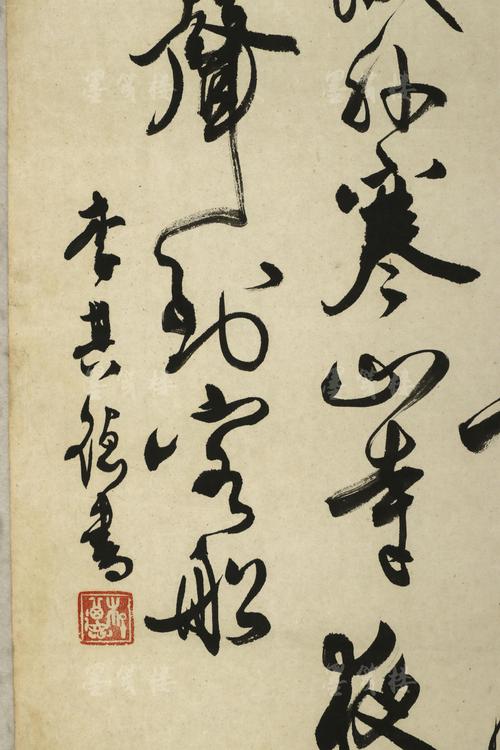 外寒山寺夜
聲到客船
李其德書